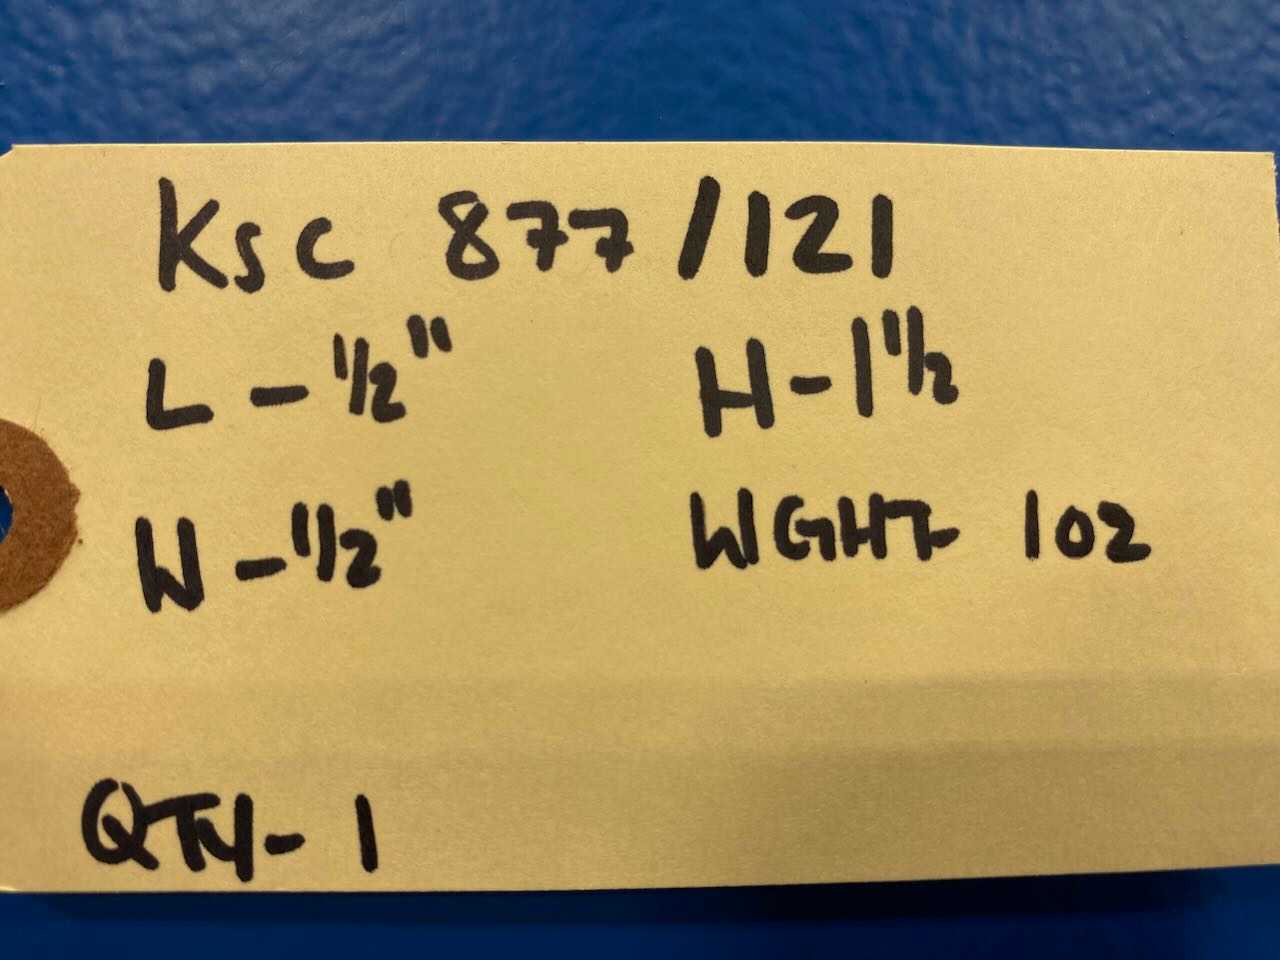 KSC 877/121
L - 1/2" H - 1 1/2
W - 1/2" WGHT 102
QTY - 1